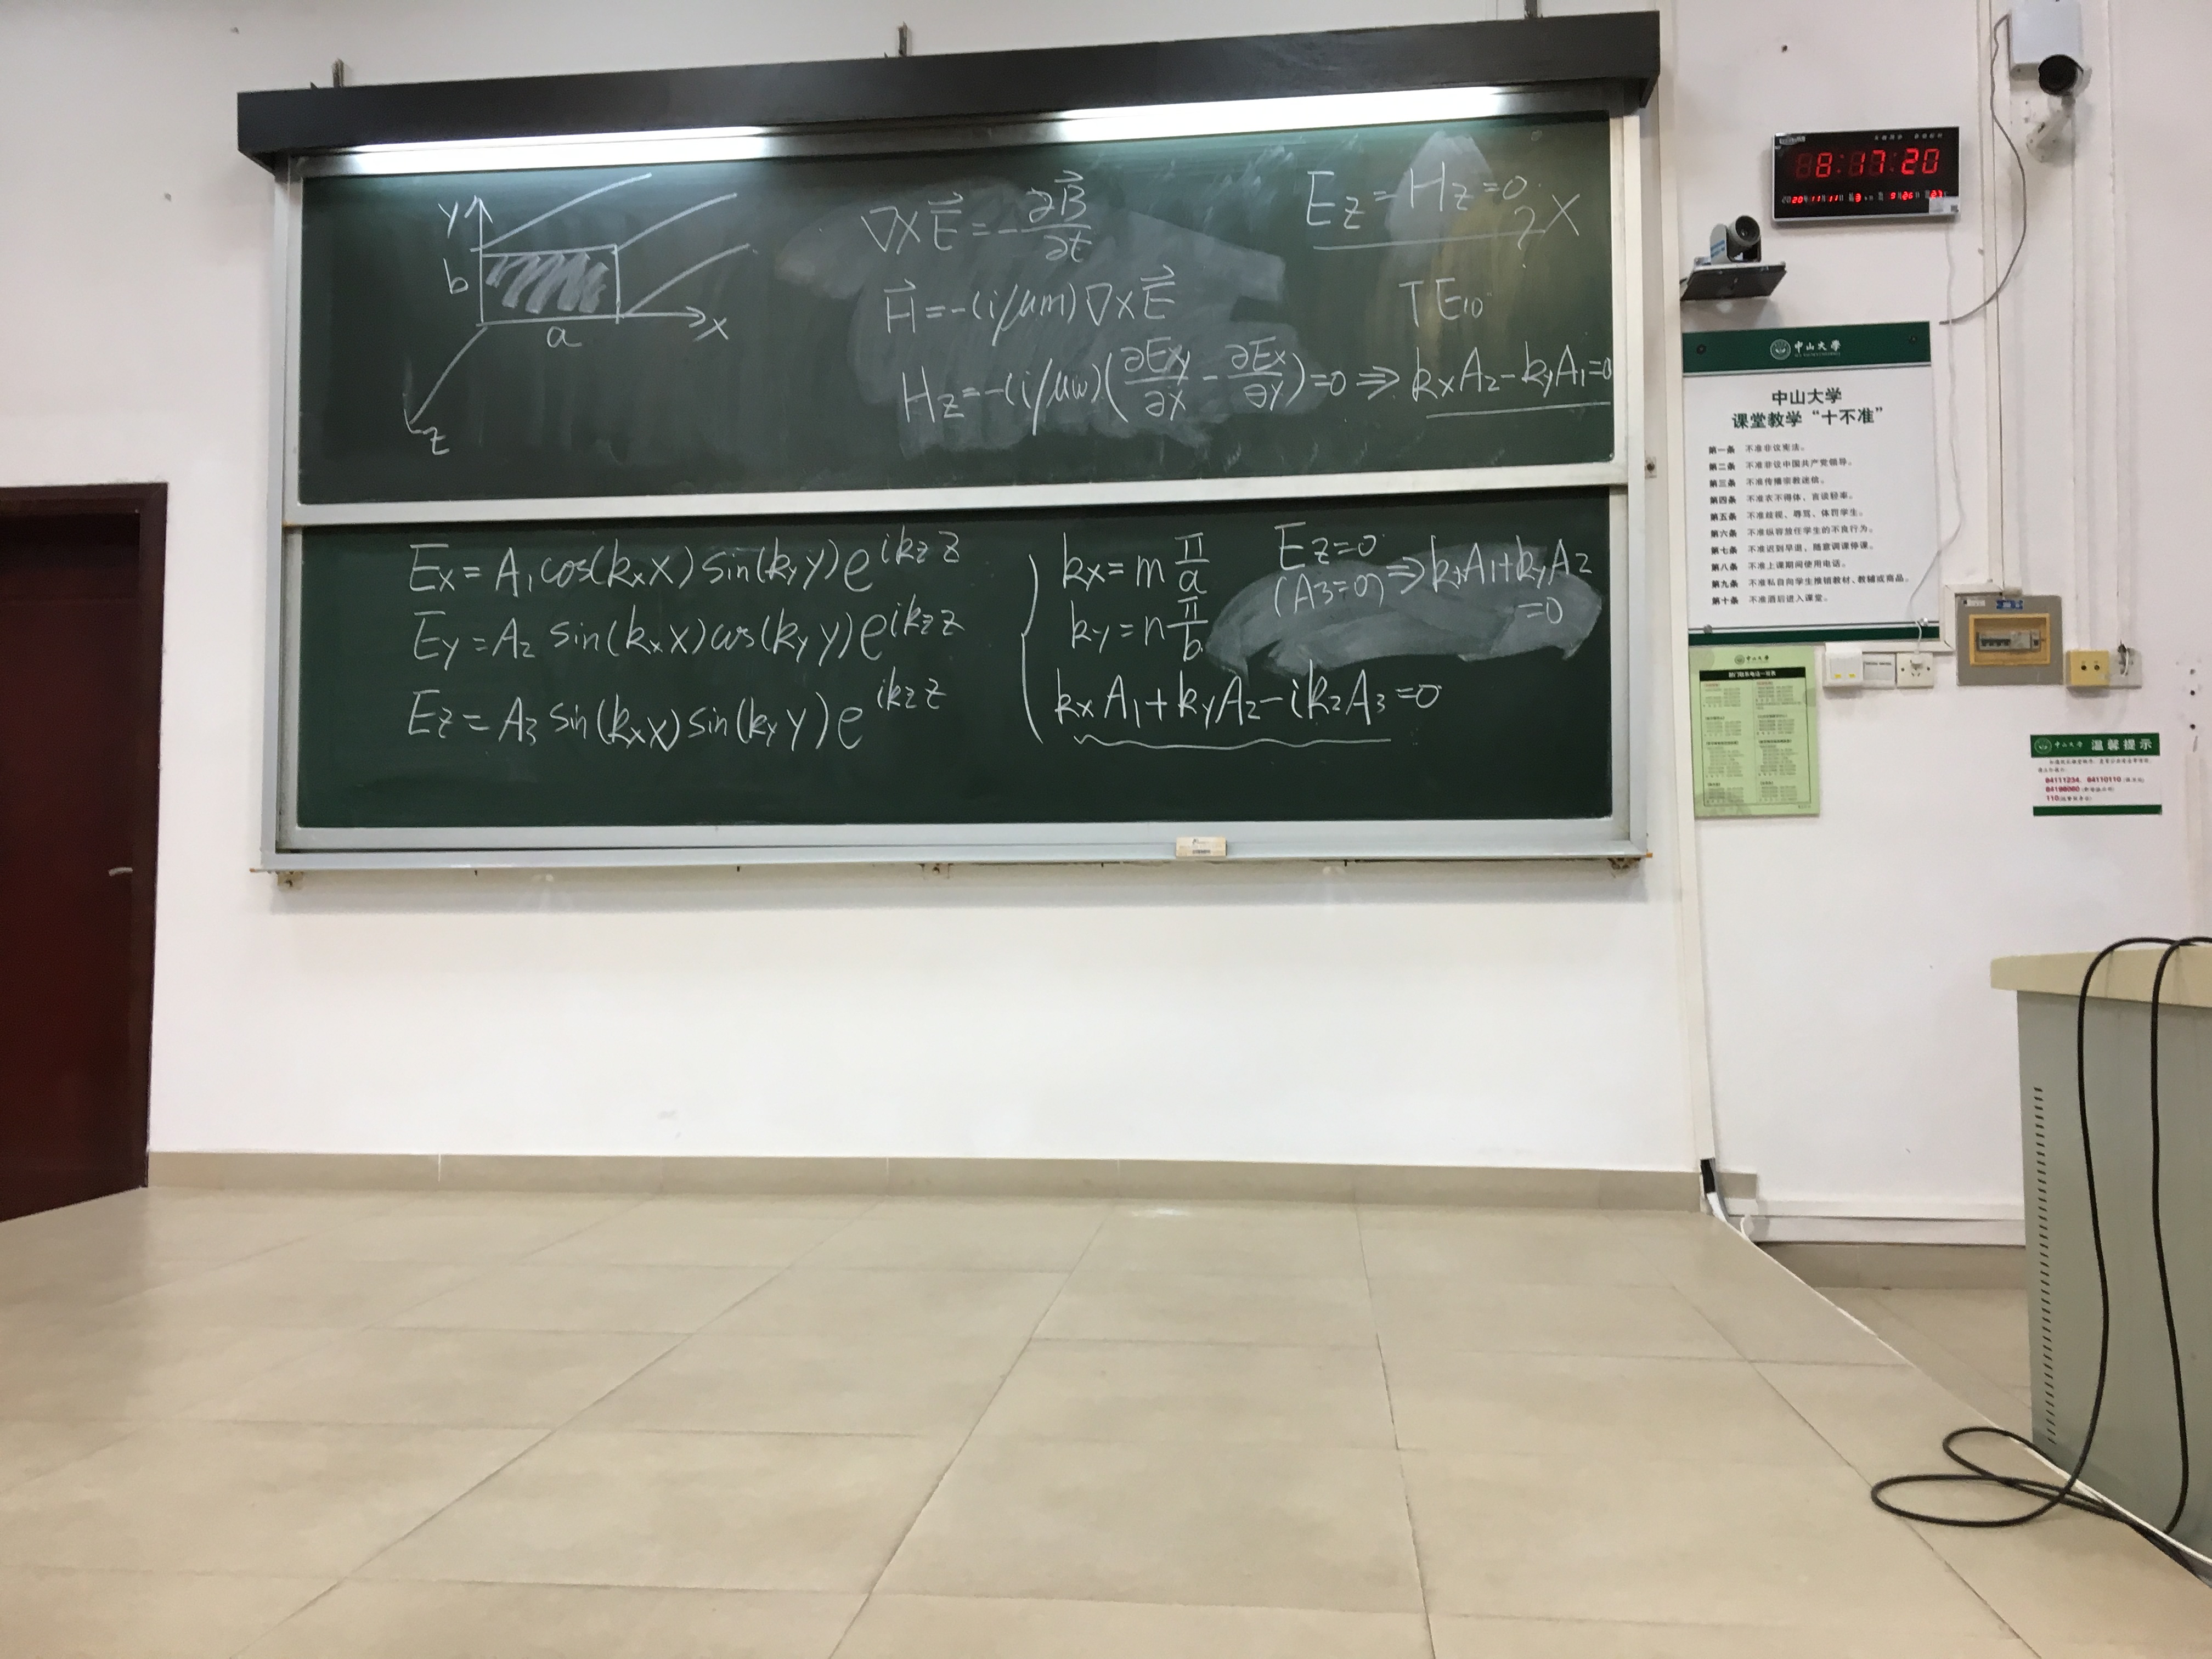 y
b
a
x
z
∇×E⃗ = -∂B⃗/∂t
H⃗ = -(i/μm)∇×E⃗
Hz = -(i/μω)(∂Ey/∂x - ∂Ex/∂y) = 0 ⇒ kxA2 - kyA1 = 0
Ez = Hz = 0 ? X
TE10
Ex = A1 cos(kxX) sin(kyy) e^{ikzz}
Ey = A2 sin(kxX) cos(kyy) e^{ikzz}
Ez = A3 sin(kxX) sin(kyy) e^{ikzz}
kx = m π/a
ky = n π/b
kxA1 + kyA2 - ikzA3 = 0
Ez = 0
(A3=0) ⇒ kxA1 + kyA2
= 0
8:17:20
中山大學
中山大学
课堂教学“十不准”
第一条 不准非议宪法。
第二条 不准非议中国共产党领导。
第三条 不准传播宗教迷信。
第四条 不准衣不得体、言谈轻率。
第五条 不准歧视、辱骂、体罚学生。
第六条 不准纵容放任学生的不良行为。
第七条 不准迟到早退，随意调课停课。
第八条 不准上课期间使用电话。
第九条 不准私自向学生推销教材、教辅或商品。
第十条 不准酒后进入课堂。
中山大學
中山大學 温馨提示
84111234、84110110
110